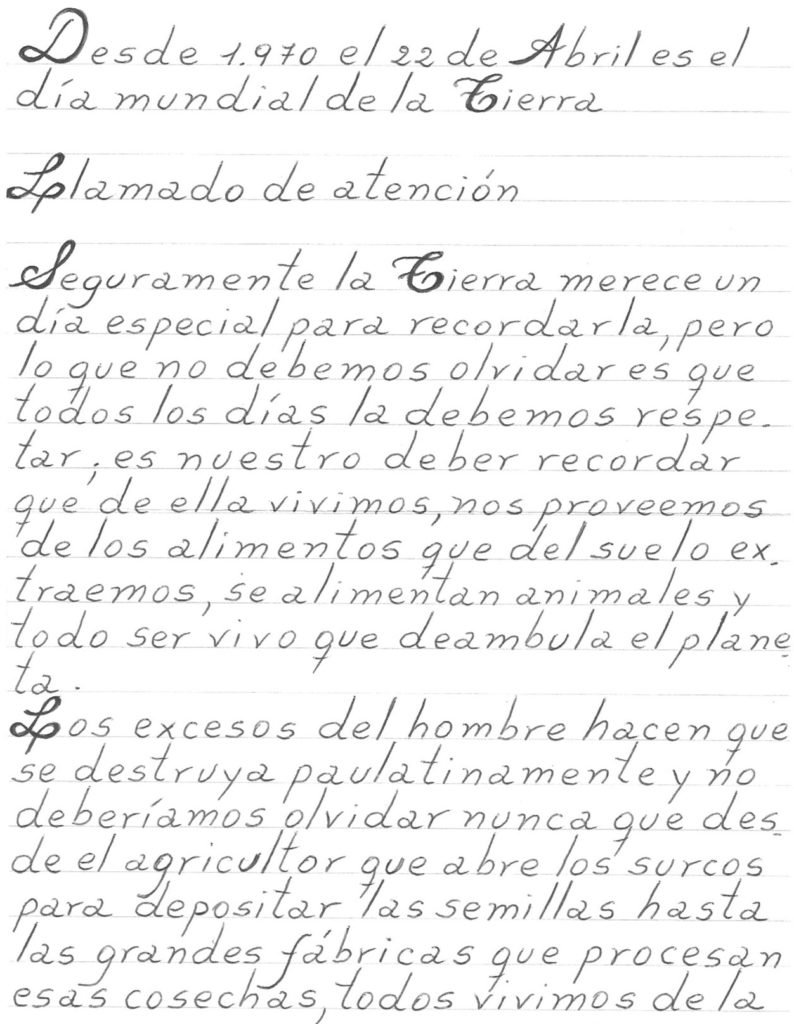 Desde 1.970 el 22 de Abril es el
día mundial de la Tierra
Llamado de atención
Seguramente la Tierra merece un
día especial para recordarla, pero
lo que no debemos olvidar es que
todos los días la debemos respe-
tar; es nuestro deber recordar
que de ella vivimos, nos proveemos
de los alimentos que del suelo ex-
traemos, se alimentan animales y
todo ser vivo que deambula el plane-
ta.
Los excesos del hombre hacen que
se destruya paulatinamente y no
deberíamos olvidar nunca que des-
de el agricultor que abre los surcos
para depositar las semillas hasta
las grandes fábricas que procesan
esas cosechas, todos vivimos de la